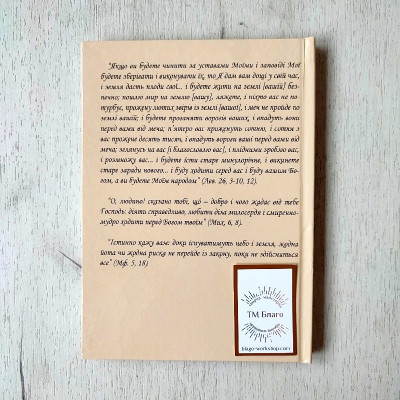 "Якщо ви будете чинити за уставами Моїми і заповіді Мої
будете зберігати і виконувати їх, то Я дам вам дощі у свій час,
і земля дасть плоди свої... і будете жити на землі [вашій] без-
печно; пошлю мир на землю [вашу], ляжете, і ніхто вас не по-
турбує, прожену лютих звірів із землі [вашої], і меч не пройде по
землі вашій; і будете проганяти ворогів ваших, і впадуть вони
перед вами від меча; п'ятеро вас прожнуть сотню, і сотня з
вас прожене десять тисяч, і впадуть вороги ваші перед вами від
меча; зглянусь на вас [і благословлю вас], і плідними зроблю вас,
і розмножу вас... і будете їсти старе минулорічне, і викинете
старе заради нового... і буду ходити серед вас і буду вашим Бо-
гом, а ви будете Моїм народом" (Лев. 26, 3-10, 12).
"О, людино! сказано тобі, що́ – добро і чого жадає від тебе
Господь: діяти справедливо, любити діла милосердя і смиренно-
мудро ходити перед Богом твоїм" (Мих. 6, 8).
"Істинно кажу вам: доки існуватимуть небо і земля, жодна
йота чи жодна риска не перейде із закону, поки не здійсниться
все" (Мф. 5, 18)
ТМ Благо
blago-workshop.com